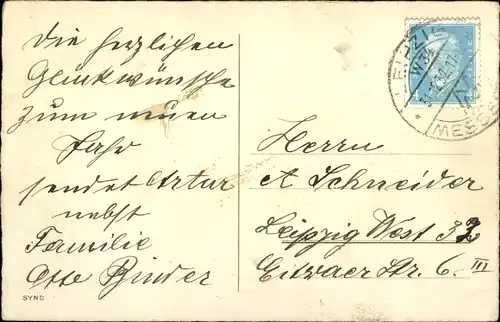 Die herzlichen
Glückwünsche
zum neuen
Jahr
sendet Artur
nebst
Familie
Otto Binder
SYND
LEIPZIG
W32
MESSE
Herrn
A Schneider
Leipzig West 32
Str. 6. III